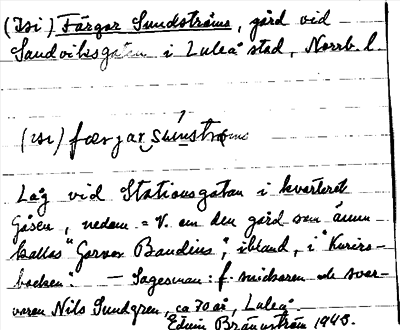 (Isi) Färgar Sundströms, gård vid
Sandviksgatan i Luleå stad, Norrb. l.
(ısi) færjar súnstrøms
Låg vid Stationsgatan i kvarteret
Gåsen, nedom = V. om den gård som ännu
kallas "Garvar Baudins", ibland, i "Kurirs-
backen". — Sagesman: f. snickaren och svar-
varen Nils Sundgren, ca 70 år, Luleå.
Edvin Brännström 1948.